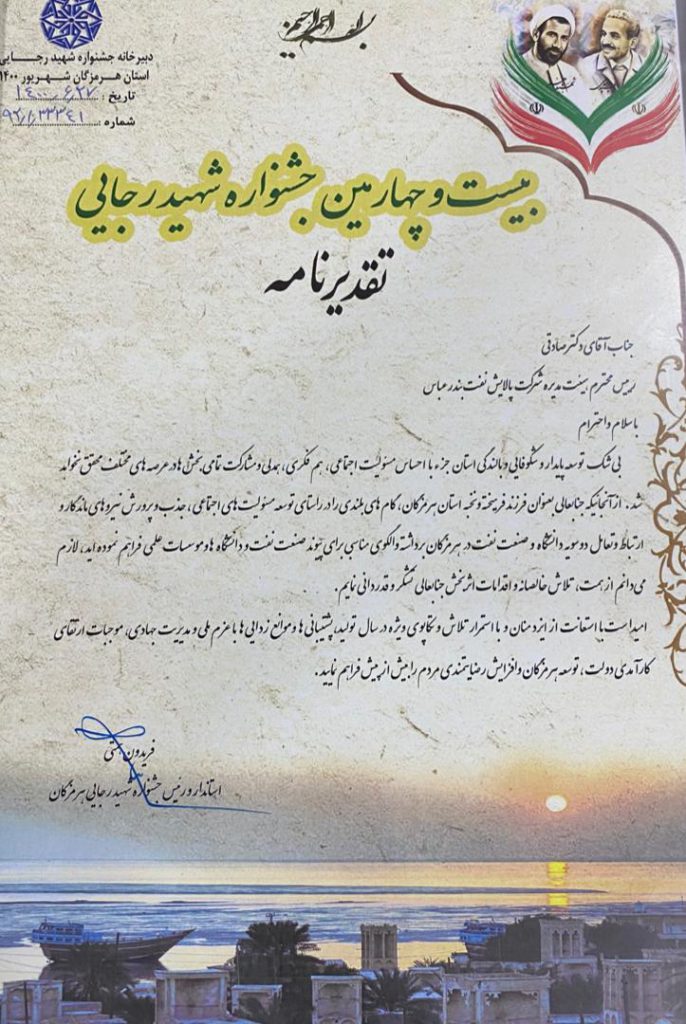 بسم الله الرحمن الرحیم
دبیرخانه جشنواره شهید رجـــایی
استان هـرمزگان شـهریور ۱۴۰۰
تاریخ : ۱۴۰۰/۶/۲۷
شماره :
بیست و چهارمین جشنواره شهید رجایی
تقدیرنامه
جناب آقای دکتر صادقی
رییس محترم هیئت مدیره شرکت پالایش نفت بندرعباس
با سلام و احترام
بی شک توسعه پایدار و شکوفایی و بالندگی استان جزء با احساس مسئولیت اجتماعی، هم فکری، همدلی و مشارکت تمامی بخش ها در عرصه های مختلف محقق نخواهد
شد. از آنجائیکه جنابعالی بعنوان فرزند فرهیخته و نخبه استان هرمزگان، گام های بلندی را در راستای توسعه مسئولیت های اجتماعی، جذب و پرورش نیروهای ماندگار و
ارتباط و تعامل دوسویه دانشگاه و صنعت نفت در هرمزگان برداشته و الگوی مناسبی برای پیوند صنعت نفت و دانشگاه ها و موسسات علمی فراهم نموده اید، لازم
می دانم از همت، تلاش خالصانه و اقدامات اثربخش جنابعالی تشکر و قدردانی نمایم.
امید است با استعانت از ایزد منان و با استمرار تلاش و تکاپوی ویژه در سال تولید، پشتیبانی ها و موانع زدایی ها با عزم ملی و مدیریت جهادی، موجبات ارتقای
کارآمدی دولت، توسعه هرمزگان و افزایش رضایتمندی مردم را بیش از پیش فراهم نمایید.
فریدون همتی
استاندار و رئیس جشنواره شهید رجایی هرمزگان